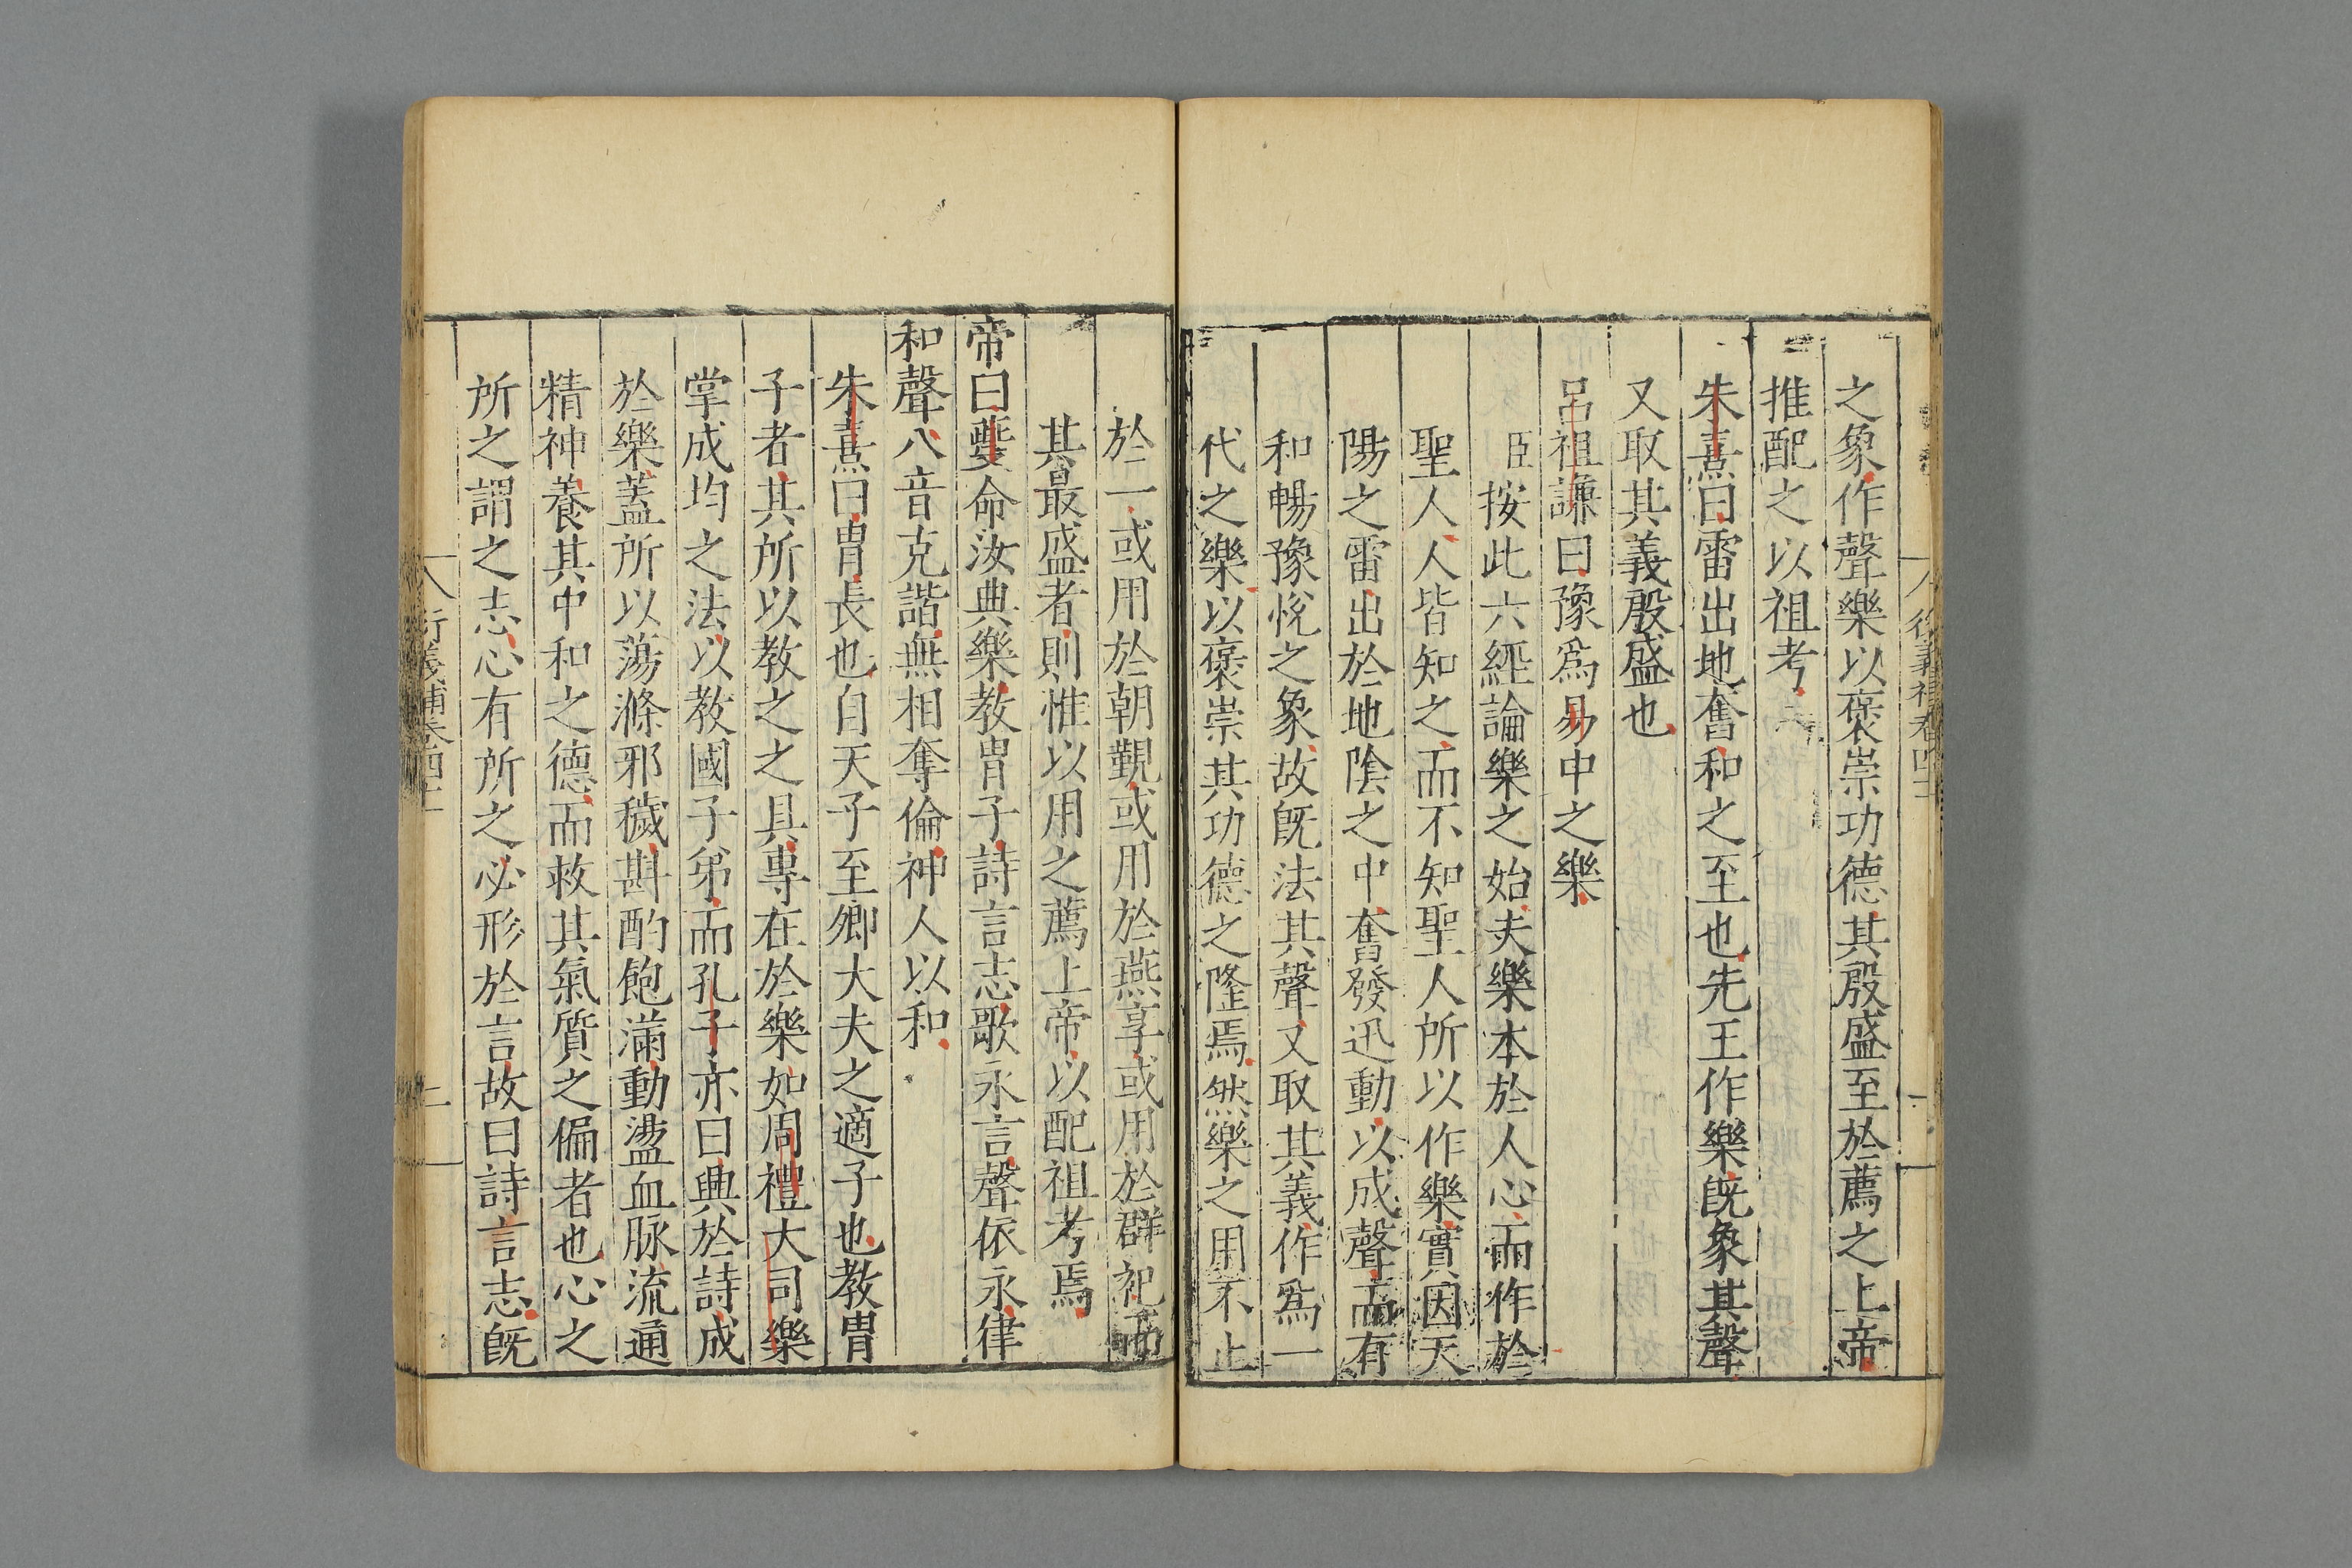 之象作聲樂以褒崇功德其殷盛至於薦之上帝
推配之以祖考
朱熹曰雷出地奮和之至也先王作樂旣象其聲
又取其義殷盛也
呂祖謙曰豫爲易中之樂
臣按此六經論樂之始夫樂本於人心而作於
聖人人皆知之而不知聖人所以作樂實因天
陽之雷出於地陰之中奮發迅動以成聲而有
和暢豫悅之象故旣法其聲又取其義作爲一
代之樂以褒崇其功德之隆焉然樂之用不止
於一或用於朝覲或用於燕享或用於群祀而
其最盛者則惟以用之薦上帝以配祖考焉
帝曰夔命汝典樂教胄子詩言志歌永言聲依永律
和聲八音克諧無相奪倫神人以和
朱熹曰胄長也自天子至卿大夫之適子也教胄
子者其所以教之之具專在於樂如周禮大司樂
掌成均之法以教國子弟而孔子亦曰興於詩成
於樂蓋所以蕩滌邪穢斟酌飽滿動盪血脉流通
精神養其中和之德而救其氣質之偏者也心之
所之謂之志心有所之必形於言故曰詩言志旣
衍義補卷四十